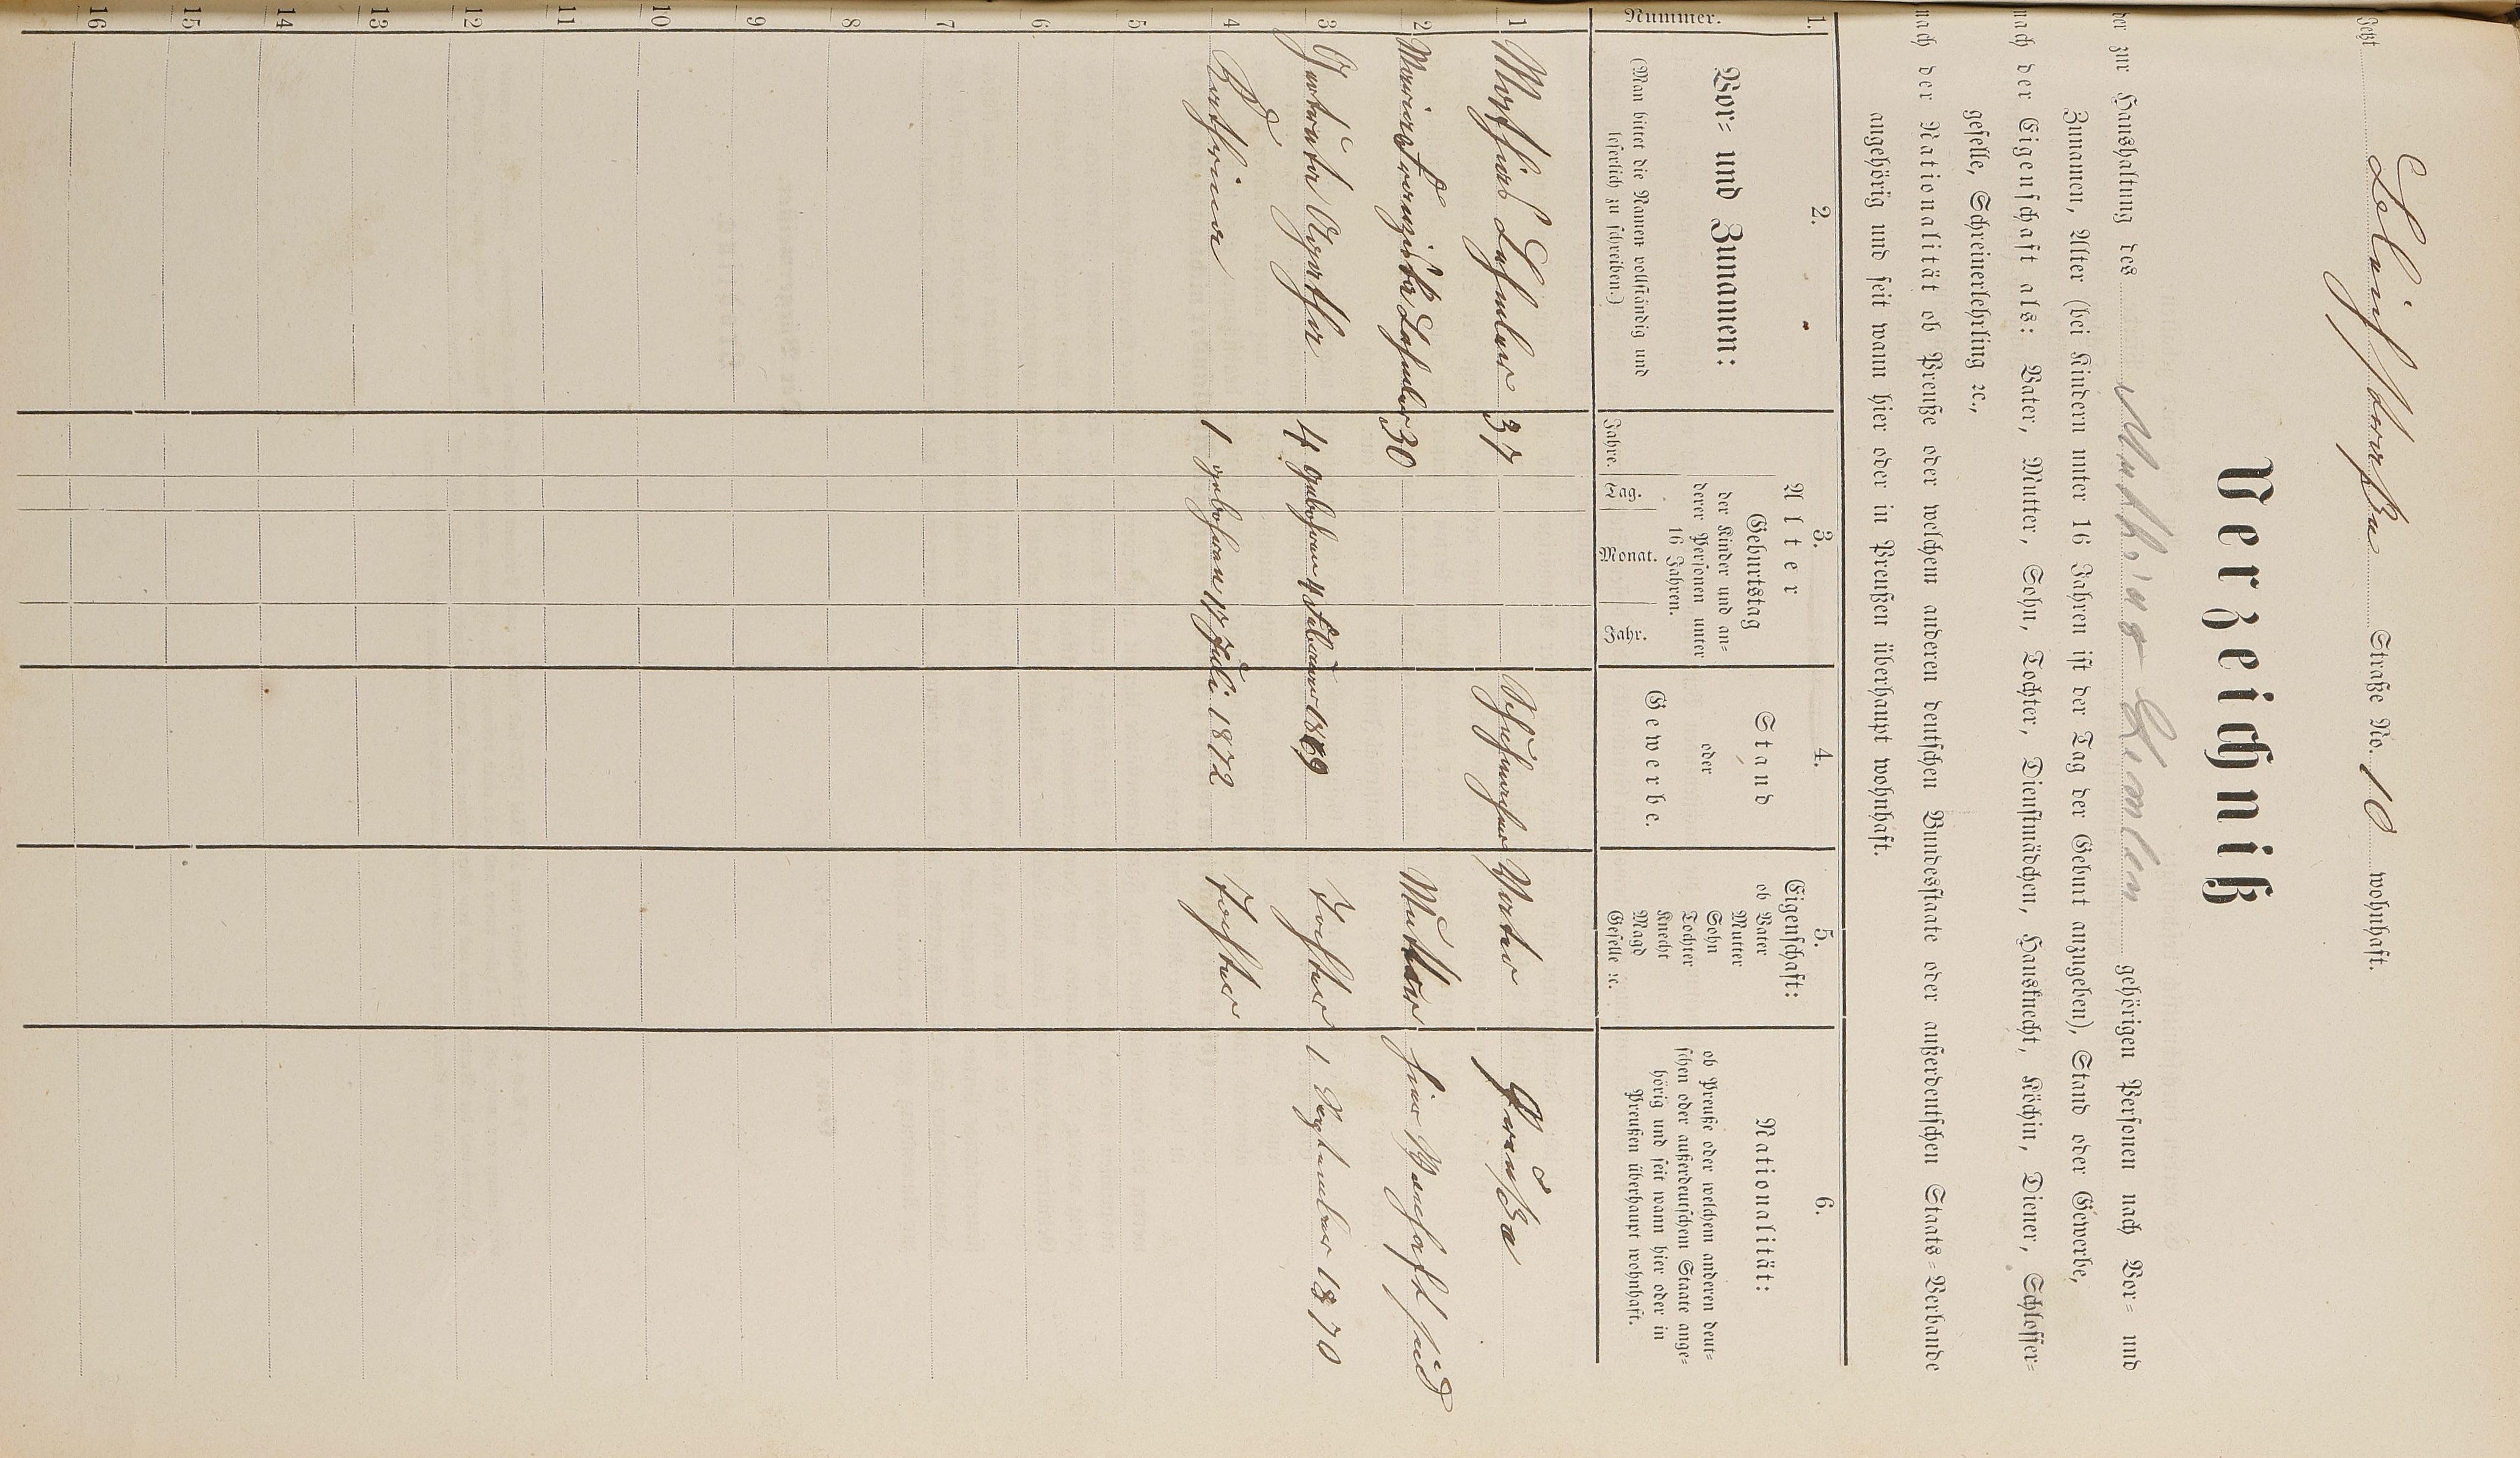 Jetzt Schießstraße Straße No. 10 wohnhaft.
Verzeichniß
der zur Haushaltung des Mathias gehörigen Personen nach Vor- und
Zunamen, Alter (bei Kindern unter 16 Jahren ist der Tag der Geburt anzugeben), Stand oder Gewerbe,
nach der Eigenschaft als: Vater, Mutter, Sohn, Tochter, Dienstmädchen, Hausknecht, Köchin, Diener, Schlosser-
geselle, Schreinerlehrling ꝛc.,
nach der Nationalität ob Preuße oder welchem anderen deutschen Bundesstaate oder außerdeutschen Staats-Verbande
angehörig und seit wann hier oder in Preußen überhaupt wohnhaft.
1. 2. 3. 4. 5. 6.
Nummer.
Vor- und Zunamen:
(Man bittet die Namen vollständig und
leserlich zu schreiben.)
Alter
Geburtstag
der Kinder und an-
derer Personen unter
16 Jahren.
Jahre. Tag. Monat. Jahr.
Stand
oder
Gewerbe.
Eigenschaft:
ob Vater
Mutter
Sohn
Tochter
Knecht
Magd
Geselle ꝛc.
Nationalität:
ob Preuße oder welchem anderen deut-
schen oder außerdeutschem Staate ange-
hörig und seit wann hier oder in
Preußen überhaupt wohnhaft.
1 Mathias 37 Schuhmacher Vater Preuße
2 Maria Franziska 30 Mutter hier Wohnhaft seid
3 Agatha 4 gebohren 4 Februar 1869 Tochter 1. September 1870
4 Kathrina 1 gebohren 17 Juli 1872 Tochter
5
6
7
8
9
10
11
12
13
14
15
16